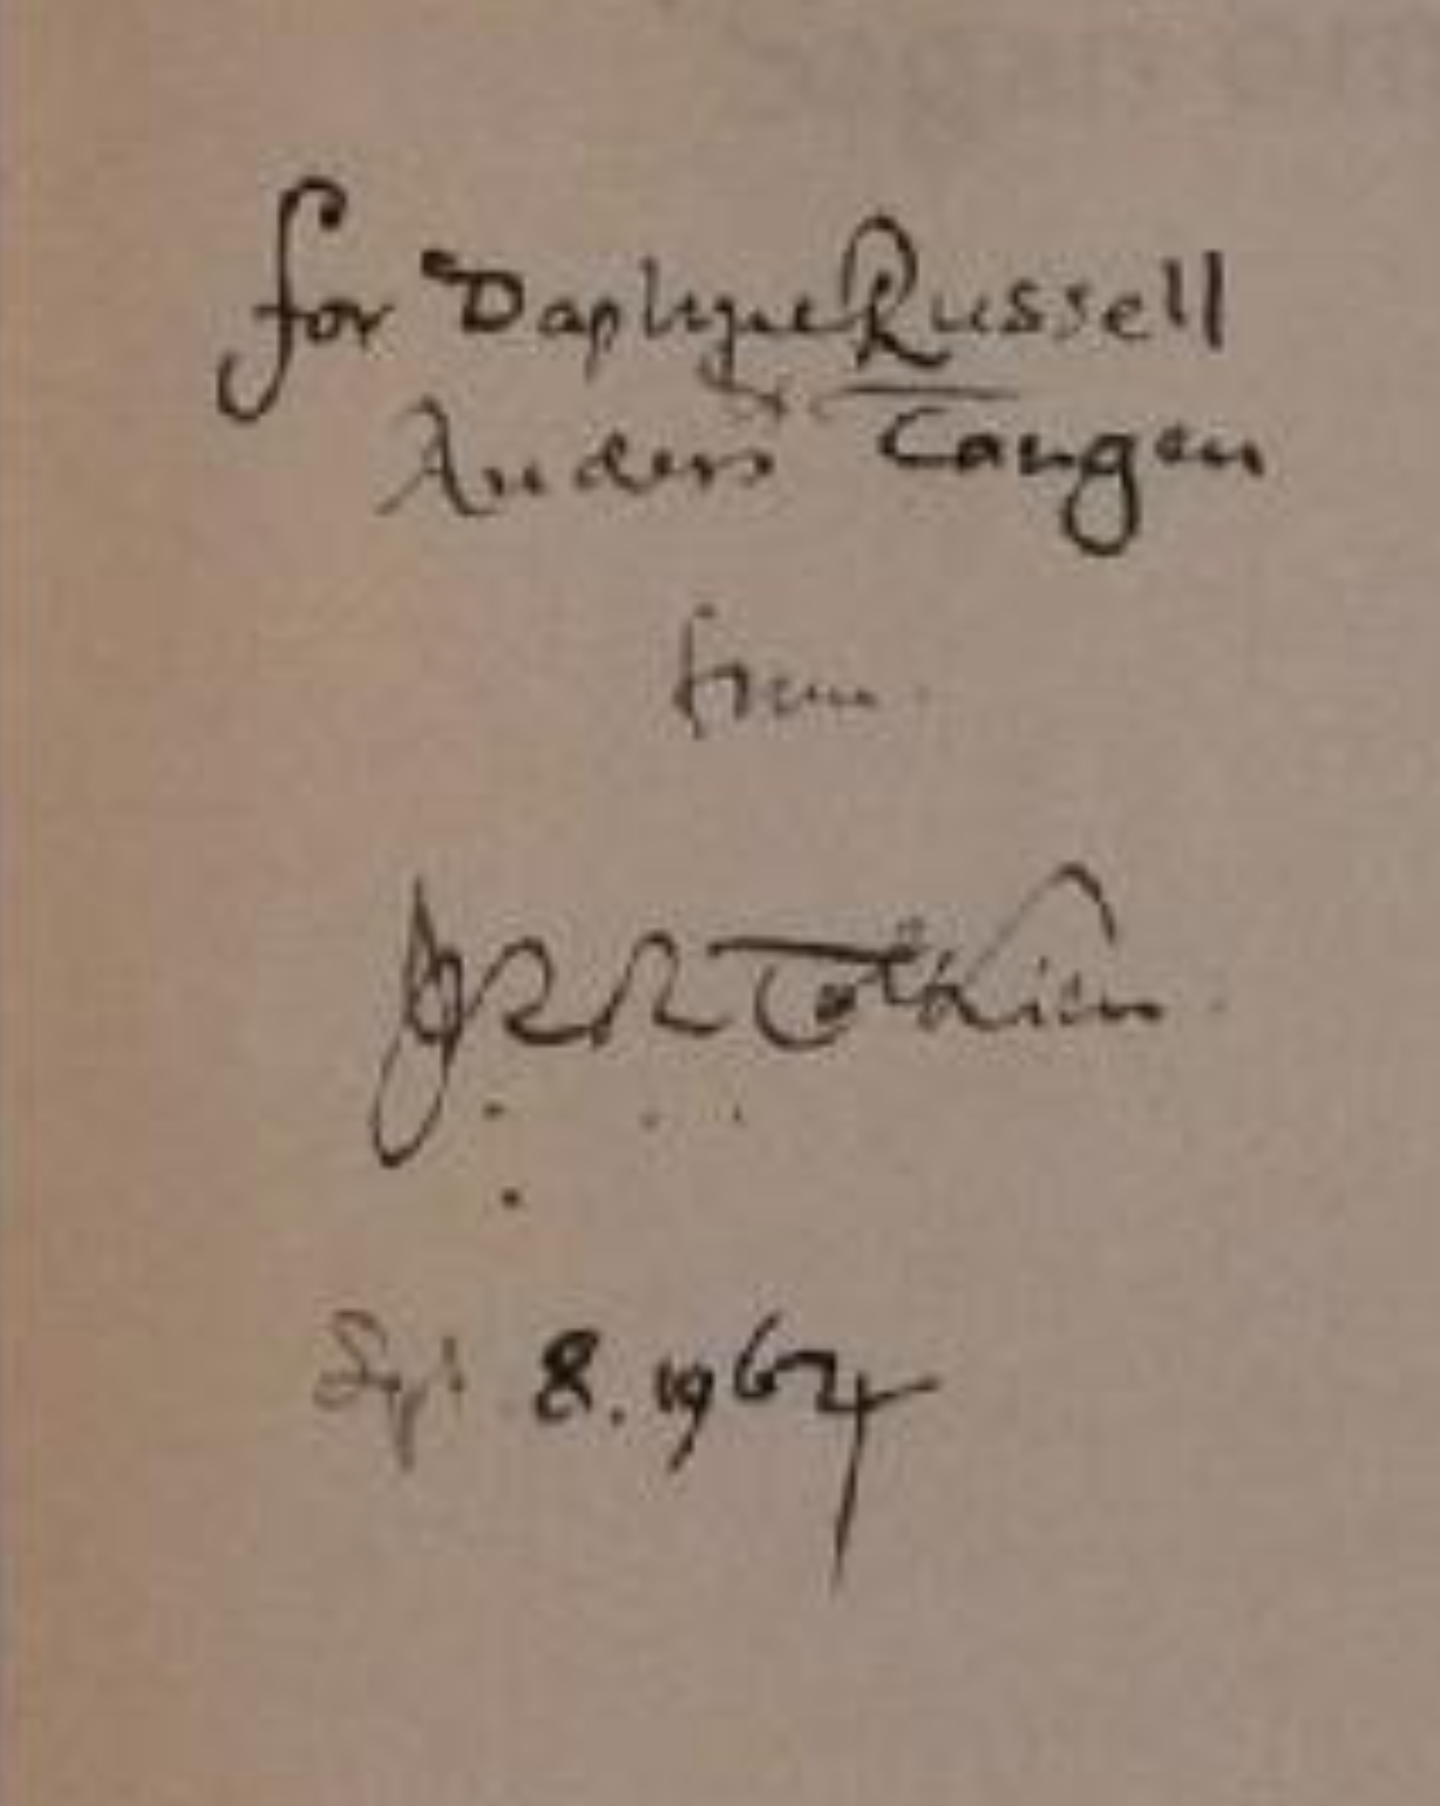 for Daphne Russell
& Anders Tangen
from
JRR Tolkien.
Sept 8. 1964